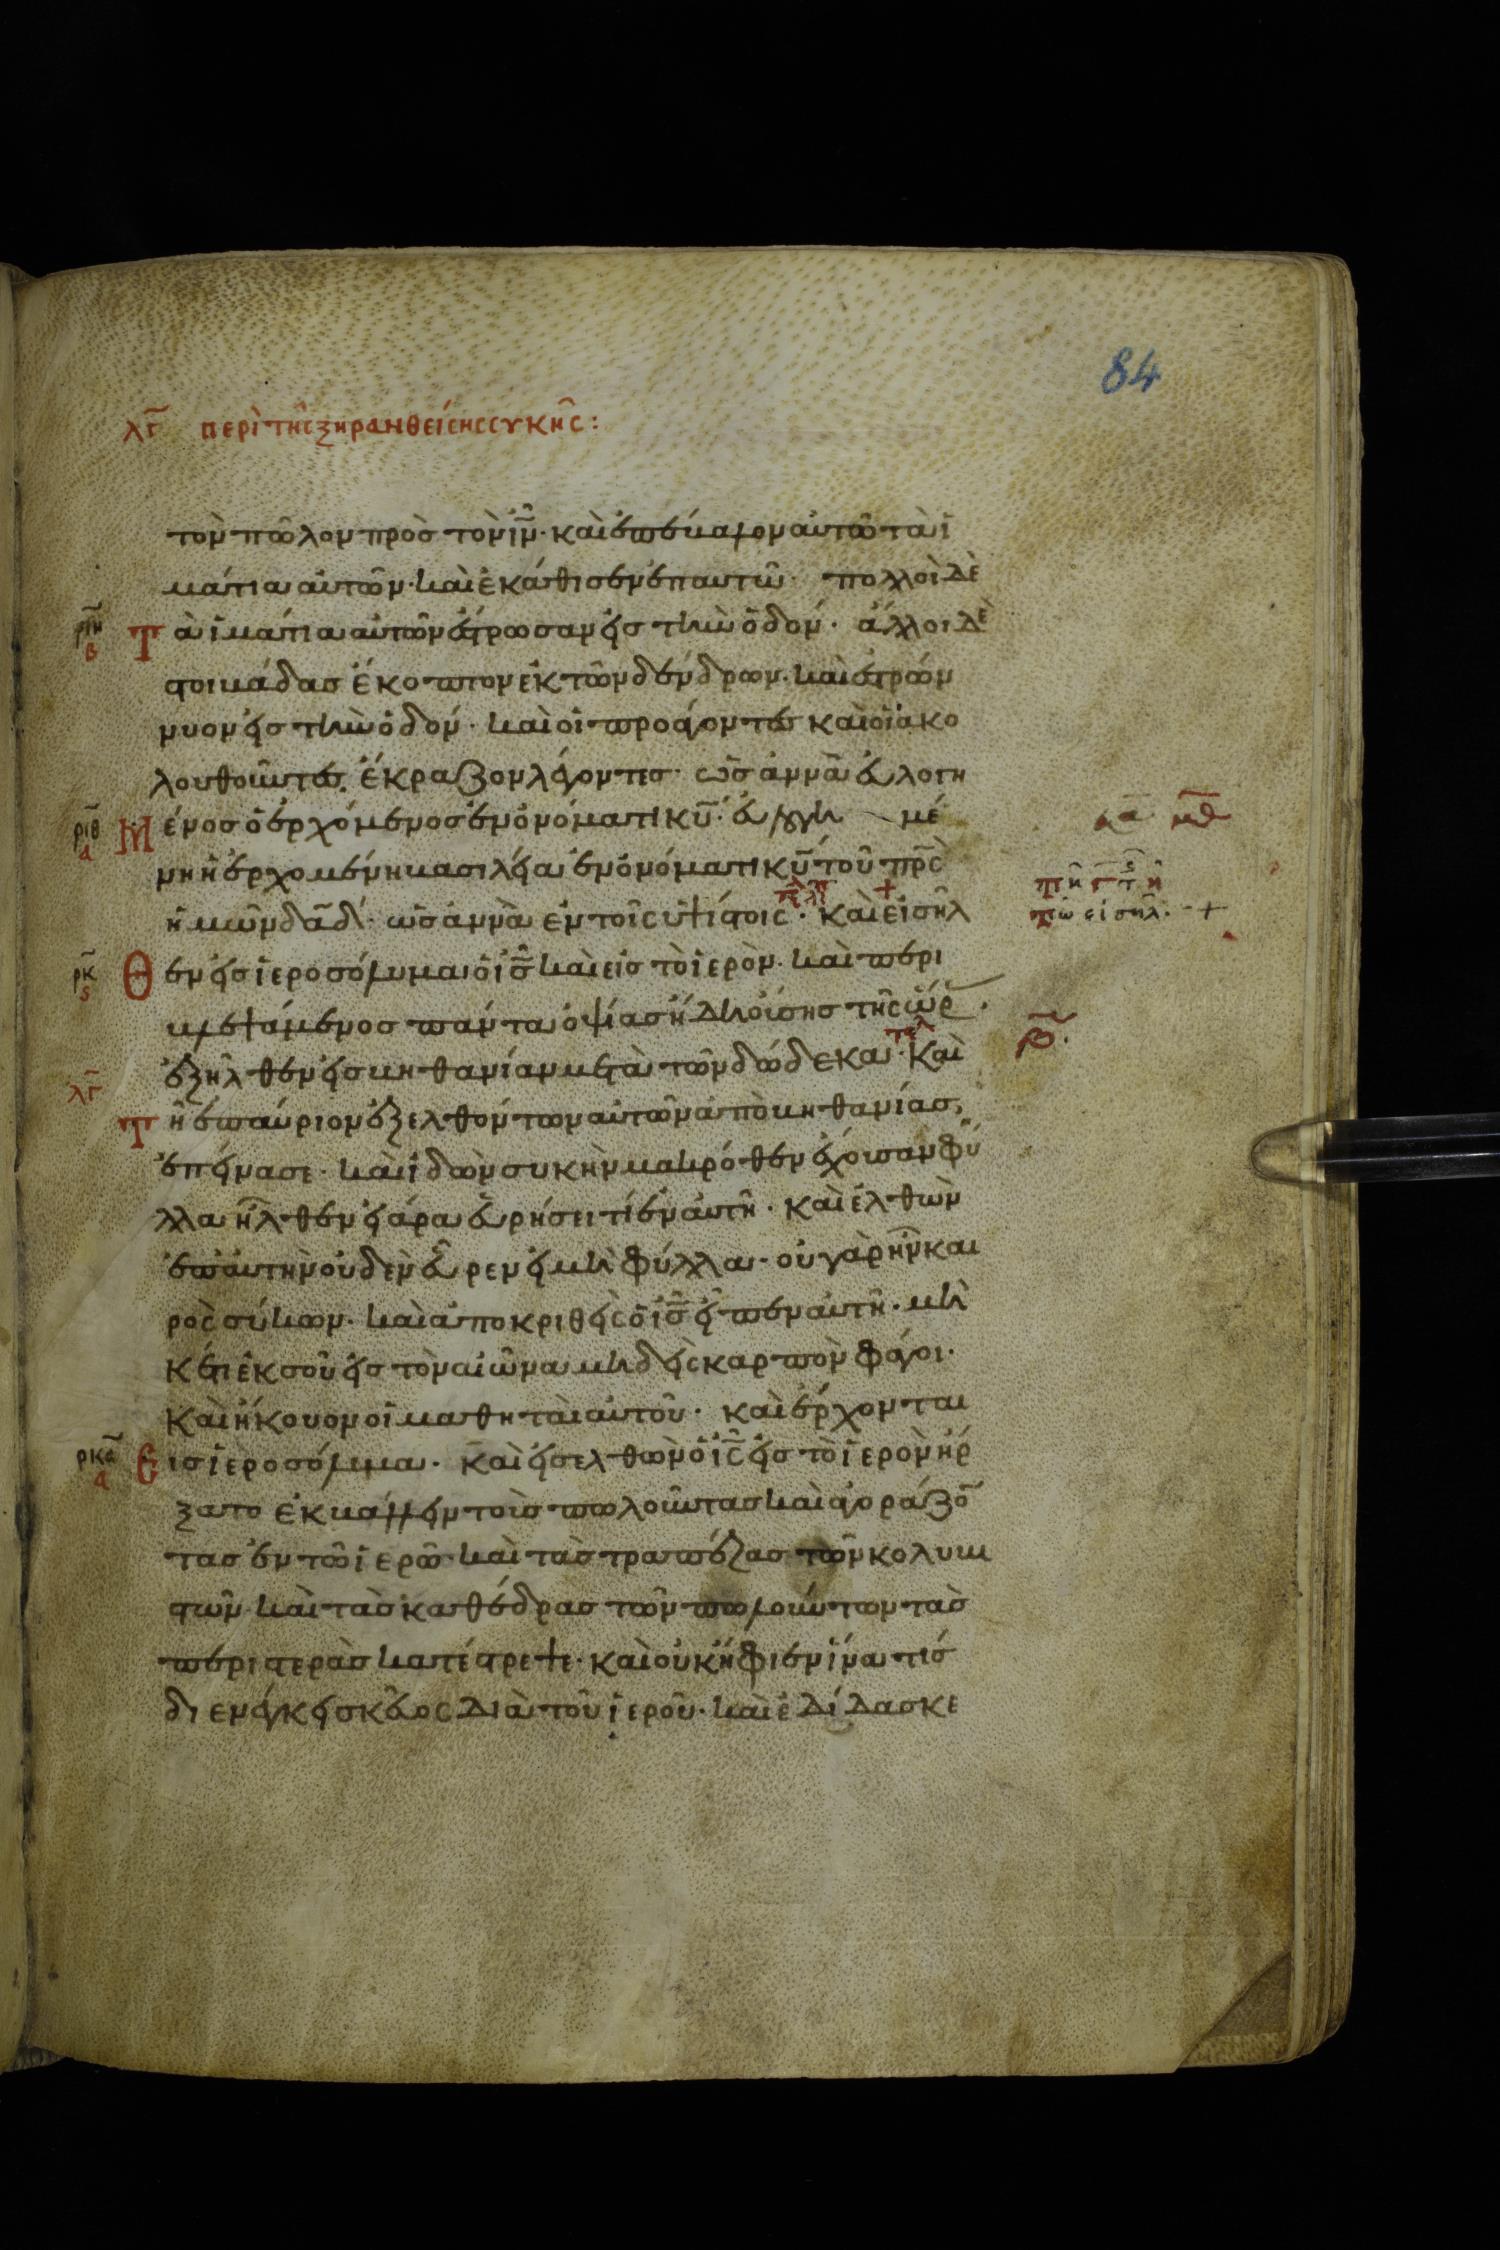 84
λγ περὶ τῆς ξηρανθείσης συκῆς:
τὸν πῶλον πρὸς τὸν ἰν̅· καὶ ἐπέβαλον αὐτῶ τὰ ἱ
μάτια αὐτῶν· καὶ ἐκάθισεν ἐπ αυτῶ· πολλοὶ δὲ
ριη β Τὰ ἱμάτια αὐτῶν ἔστρωσαν εἰς τὴν ὁδόν· ἄλλοι δὲ
στοιβάδας ἔκοπτον ἐκ τῶν δένδρων· καὶ ἐστρών
νυον εἰς τὴν ὁδόν· καὶ οἱ προάγοντες καὶ οἱ ἀκο
λουθοῦντες, ἔκραζον λέγοντες· ὡσαννὰ εὐλογη
ριθ α Μένος ὁ ἐρχόμενος ἐν ὀνόματι κυ̅· εὐλογη μέ
νη ἡ ἐρχομένη βασιλεία ἐν ὀνόματι κυ̅ τοῦ πρ̅ς
ἡμῶν δαδ̅· ὡσαννὰ ἐν τοῖς ὑψίστοις· καὶ εἰσῆλ
ρκ ς Θεν εἰς ἱεροσόλυμα ὁ ἰς̅ καὶ εἰς τὸ ἱερὸν· καὶ περι
βλεψάμενος πάντα ὀψίας ἤδη οὔσης τῆς ὥρ·
ἐξῆλθεν εἰς βηθανίαν μετὰ τῶν δώδεκα· τελ Καὶ
λγ Τῆ ἐπαύριον ἐξελθόντων αὐτῶν ἀπὸ βηθανίας,
ἐπείνασε· καὶ ἰδὼν συκὴν μακρόθεν ἔχουσαν φύ
λλα ἦλθεν εἰ ἄρα εὑρήσει τί ἐν αὐτῆ· καὶ ἐλθὼν
ἐπ αὐτὴν οὐδὲν εὗρεν εἰ μὴ φύλλα· οὐ γὰρ ἦν και
ρὸς σύκων· καὶ ἀποκριθεὶς ὁ ἰς̅ εἶπεν αὐτῆ· μὴ
κέτι ἐκ σοῦ εἰς τὸν αἰῶνα μηδεὶς καρπὸν φάγοι·
Καὶ ἤκουον οἱ μαθηταὶ αὐτοῦ· καὶ ἔρχονται
ρκα α Εἰς ἱεροσόλυμα· καὶ εἰσελθὼν ὁ ἰς̅ εἰς τὸ ἱερὸν ἤρ
ξατο ἐκβάλλειν τοὺς πωλοῦντας καὶ ἀγοράζο̅
τας ἐν τῶ ἱερῶ· καὶ τὰς τραπέζας τῶν κολυβι
στῶν· καὶ τὰς καθέδρας τῶν πωλούντων τὰς
περιστερὰς κατέστρεψε· καὶ οὐκ ἤφιεν ἵνα τίς
διενέγκη σκεῦος διὰ τοῦ ἱεροῦ· καὶ ἐδίδασκε